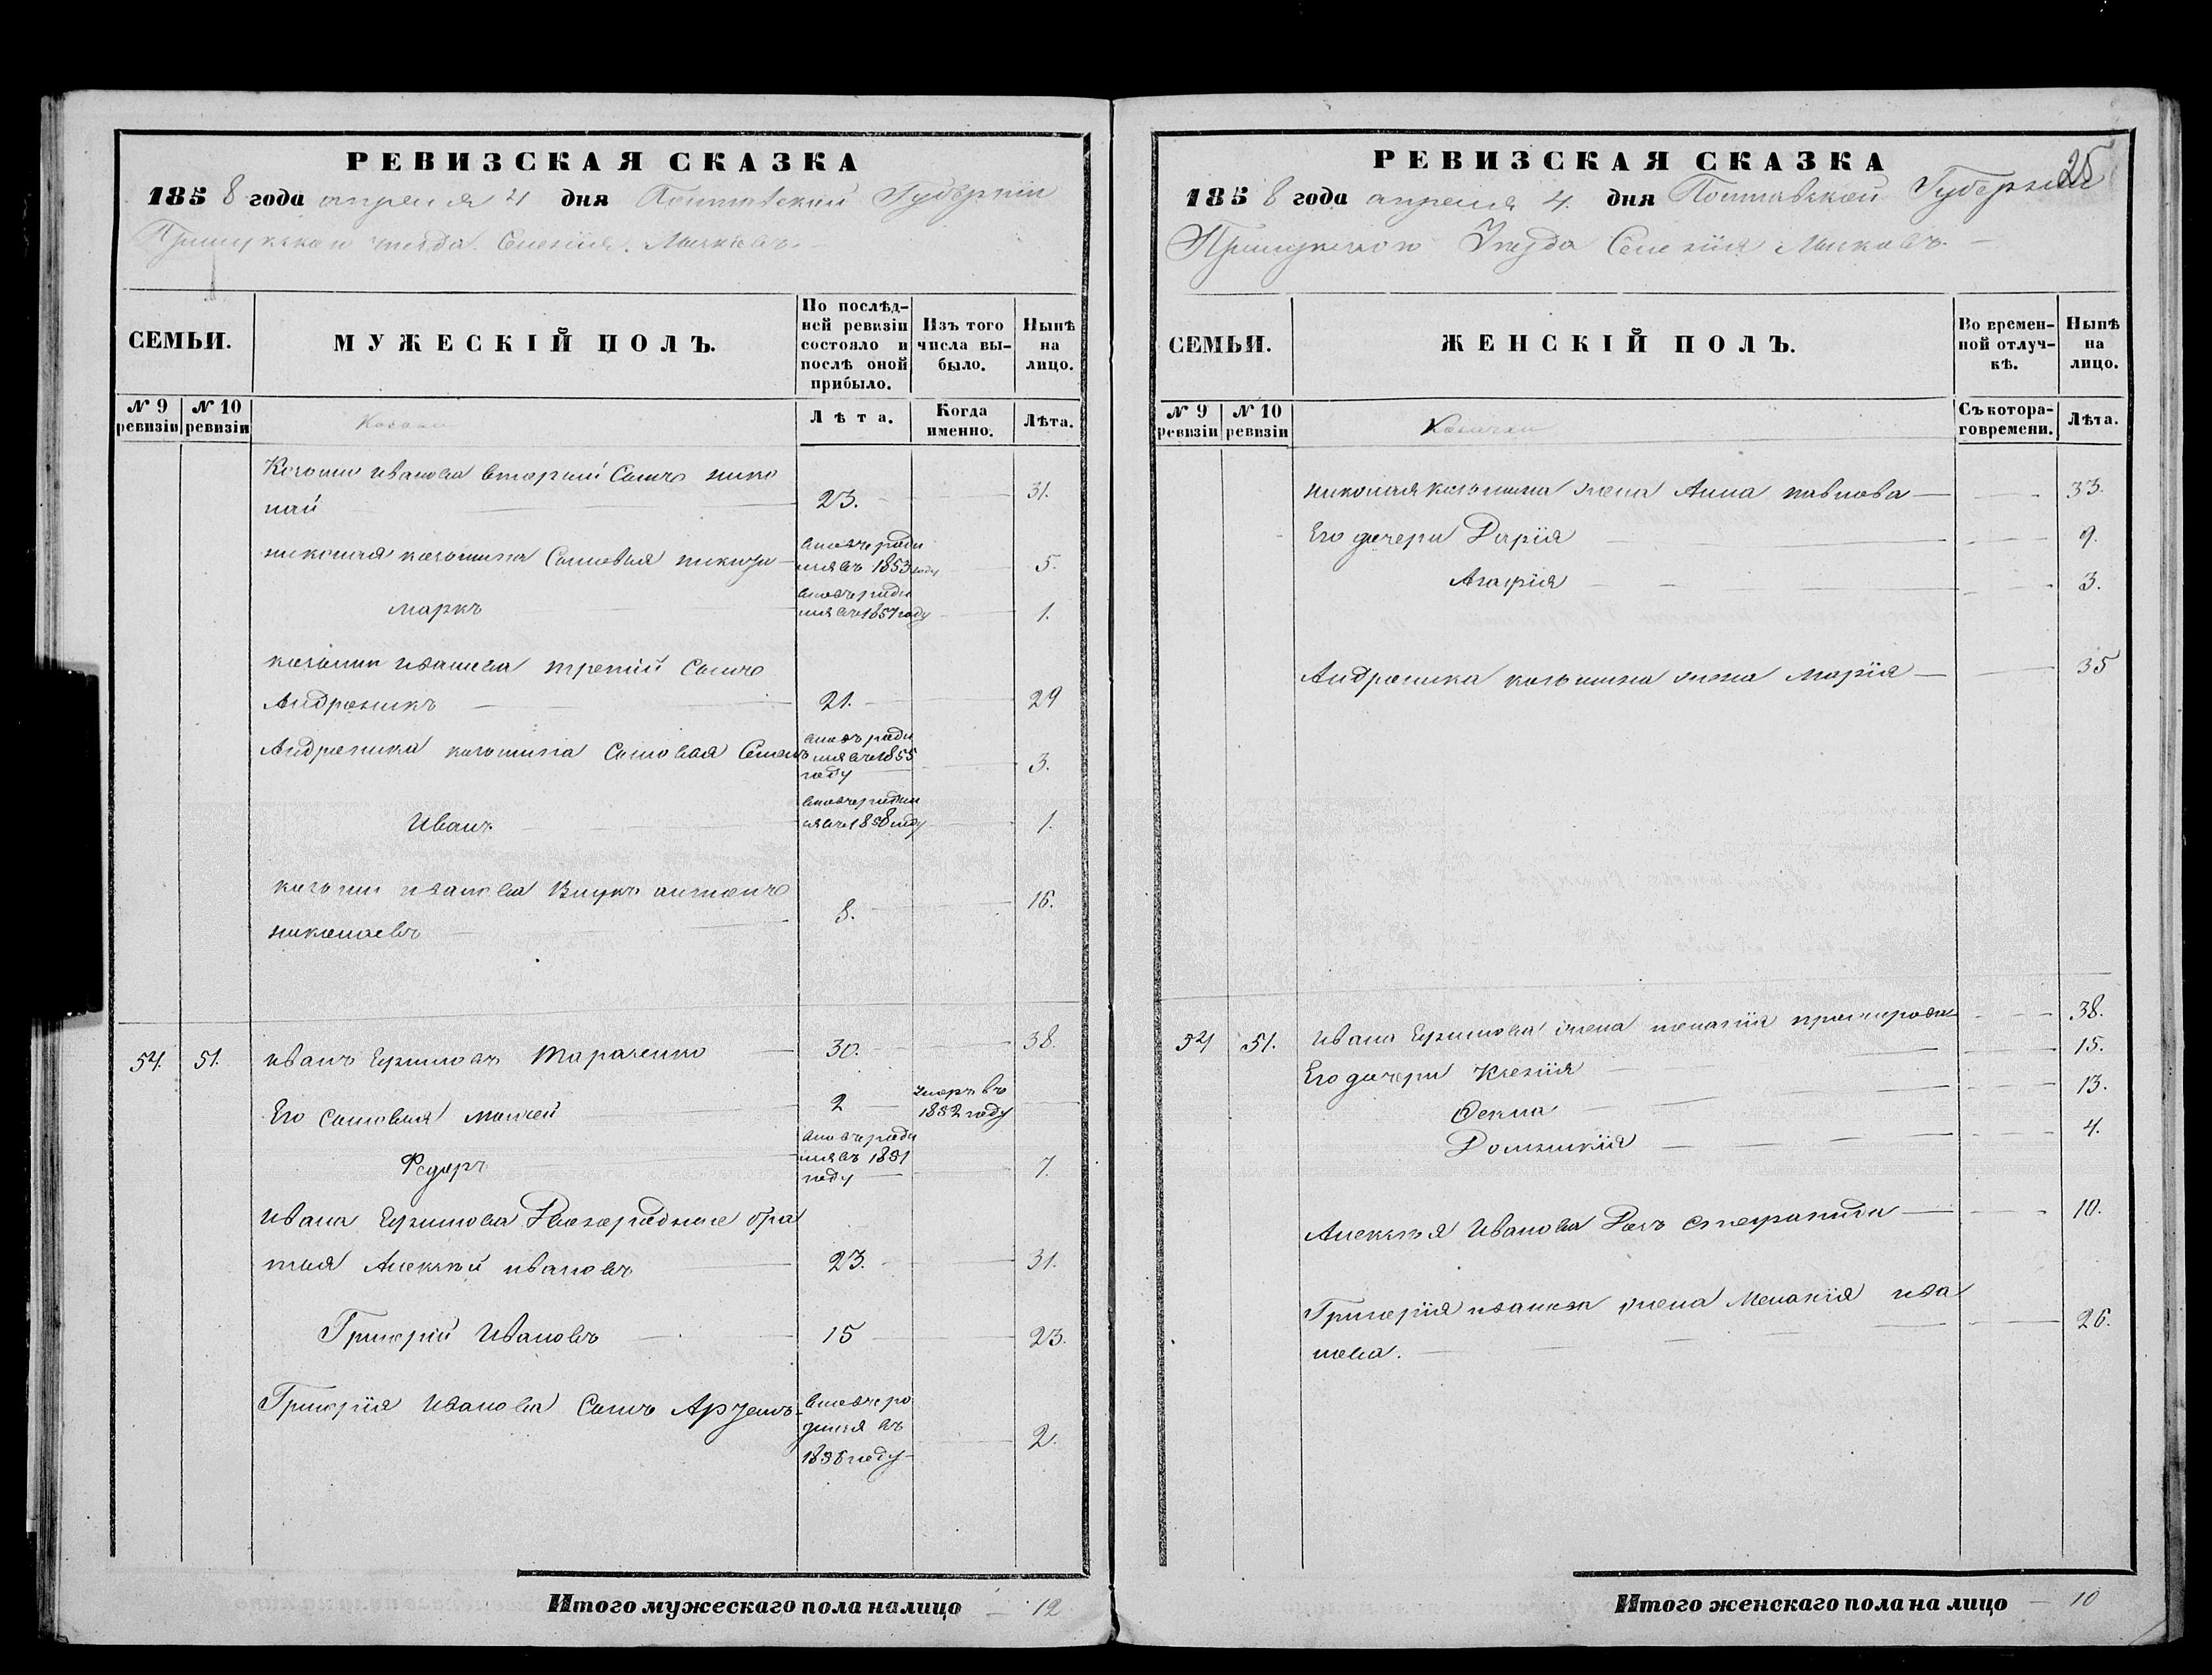 РЕВИЗСКАЯ СКАЗКА
1858 года апреля 4 дня Полтавской Губерніи
Прилукскаго уезда Селенія
СЕМЬИ.
МУЖЕСКІЙ ПОЛЪ.
По послѣд-
ней ревизіи
состояло и
послѣ оной
прибыло.
Изъ того
числа вы-
было.
Нынѣ
на
лицо.
№ 9
ревизіи
№ 10
ревизіи
Козаки
Лѣта.
Когда
именно.
Лѣта.
Козьми Иванова вторый Сынъ нико
лай 23. 31.
николая козьмина Сыновья
вновь роди
лся въ 1853 году 5.
маркъ
вновь роди
лся въ 1857 году 1.
козьми иванова третій Сынъ
Андроникъ 21. 29
Андроника козьмина Сыновья Семенъ
вновь роди
лся въ 1855
году 3.
Иванъ
вновь родил
ся въ 1858 году 1.
козьми иванова Внукъ антонъ
николаевъ 8. 16.
54. 51. иванъ Ефимовъ Тараненко 30. 38.
Его Сыновья Моисей 2
умеръ въ
1852 году
Федоръ
вновь роди
лся въ 1851
году 7.
Ивана Ефимова Двоюродные бра
тья Алексѣй ивановъ 23. 31.
Григорій Ивановъ 15 23.
Григорія Иванова Сынъ
вновь ро
дился въ
1856 году 2.
Итого мужескаго пола налицо 12
РЕВИЗСКАЯ СКАЗКА 25
1858 года апреля 4. дня Полтавской Губерніи
Прилукского Уезда Селенія
СЕМЬИ.
ЖЕНСКІЙ ПОЛЪ.
Во времен-
ной отлуч-
кѣ.
Нынѣ
на
лицо.
№ 9
ревизіи
№ 10
ревизіи
Козачки
Съ котора-
го времени.
Лѣта.
николая козьмина жена Анна павлова 33.
Его дочери Дарія 9.
Агафія 3.
Андроника козьмина жена Марія 35
54 51. Ивана Ефимова жена 38.
Его дочери Ксенія 15.
Фекла 13.
Домникія 4.
Алексѣя Иванова Дочь степанида 10.
Григорія иванова жена Меланія ива
нова. 26.
Итого женскаго пола на лицо 10